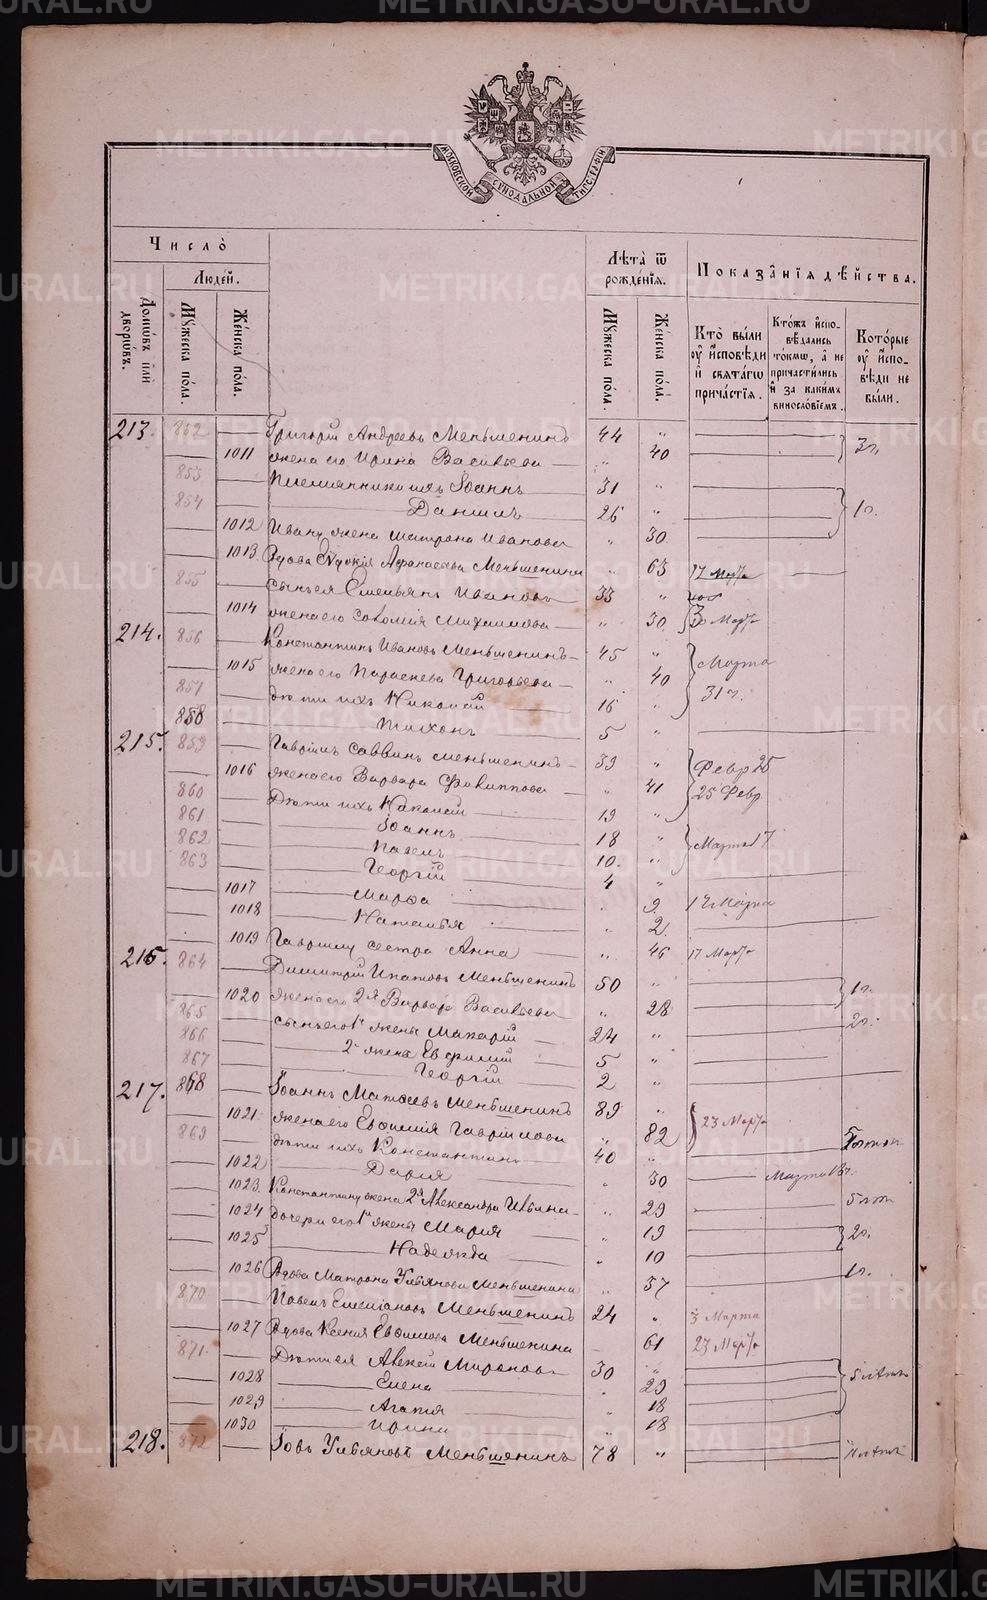 МОСКОВСКОЙ СѴНОДАЛЬНОЙ ТИПОГРАФІИ
Число̀
Людей.
Домѡвъ или дворѡвъ.
Мꙋжеска по́ла.
Же́нска по́ла.
Лѣ́та ѿ рожде́нїѧ.
Мꙋжеска по́ла.
Же́нска по́ла.
Показа́нїѧ дѣйства.
Кто̀ бы́ли ᲂу҆ и҆сповѣди и҆ свѧта́гѡ прича́стїѧ.
Кто́жъ и҆спо-вѣдались то́кмѡ, а҆ не причасти́лись и҆ за каки́мъ винословїемъ.
Кото́рые ᲂу҆ и҆спо-вѣди не бы́ли.
213. 852 Григорій Андреевъ Меньшенинъ 44 „
1011 жена его Ирина Васильева „ 40 3 г.
853 Племянники ихъ Іоаннъ 31 „
854 Даніилъ 26 „ 1 г.
1012 Ивану жена Матрона Иванова „ 30
1013 Вдова Евдокія Афанасьева Меньшенина „ 63 17 Марта
855 сынъ ея Емельянъ Ивановъ 33 „
1014 жена его Соломія Михайлова „ 30 30 Марта
214. 856 Константинъ Ивановъ Меньшенинъ 45 „
1015 жена его Параскева Григорьева „ 40 Марта
857 дѣти ихъ Николай 16 „ 31 г.
858 Тихонъ 5 „
215. 859 Гавріилъ Саввинъ Меньшенинъ 39 „ Февр 25
1016 жена его Варвара Филиппова „ 41 25 Февр
860 Дѣти ихъ Николай 19 „
861 Іоаннъ 18 „ Марта 17
862 Павелъ 10. „
863 Георгій 4 „
1017 Марѳа „ 9 Марта
1018 Наталья „ 2
1019 Гавріилу сестра Анна „ 46 17 Марта
216. 864 Димитрій Ипатовъ Меньшенинъ 50 „ 1 г.
1020 жена его 2я Варвара Васильева „ 28
865 сынъ его 1й жены Макарій 24 „ 2 г.
866 2й жены Евфимій 5 „
867 Георгій 2 „
217. 868 Іоаннъ Матѳеевъ Меньшенинъ 89 „
1021 жена его Евфимія Гавріилова „ 82 23 Марта
869 дѣти ихъ Константинъ 40 „
1022 Дарія „ 30 Марта
1023 Константину жена 2я Александра Ильина „ 29
1024 дочери его 1й жены Марія „ 19
1025 Надежда „ 10 2 г.
1026 Вдова Матрона Ульянова Меньшенина „ 57 1 г.
870 Павелъ Емельяновъ Меньшенинъ 24 „ 3 Марта
1027 Вдова Ксенія Евфимова Меньшенина 61 23 Марта
871. Дѣти ея Алексѣй Мироновъ 30 „
1028 Елена „ 29 5 лѣтъ
1029 Агафія „ 18
1030 Ирина „ 18
218. 872 Іовъ Ульяновъ Меньшенинъ 78 „
METRIKI.GASO-URAL.RU